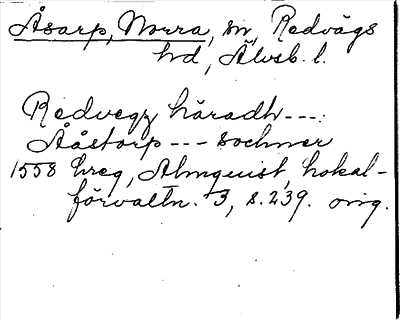 Åsarp, Norra, sn, Redvägs
hd, Älvsb. l.
Redvegz häradh---:
Aåstorp --- sochner
1558 hreg, Almquist, Lokal-
förvaltn. 3, s. 239. orig.